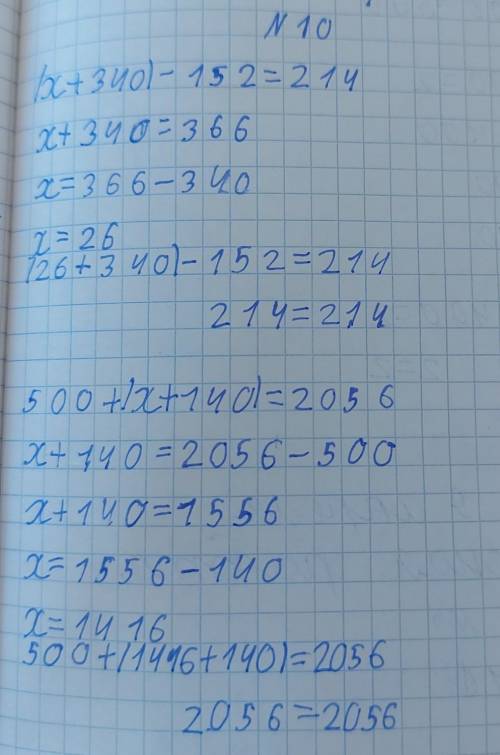 N 10
(x+340)-152=214
x+340=366
x=366-340
x=26
(26+340)-152=214
214=214
500+(x+140)=2056
x+140=2056-500
x+140=1556
x=1556-140
x=1416
500+(1416+140)=2056
2056=2056